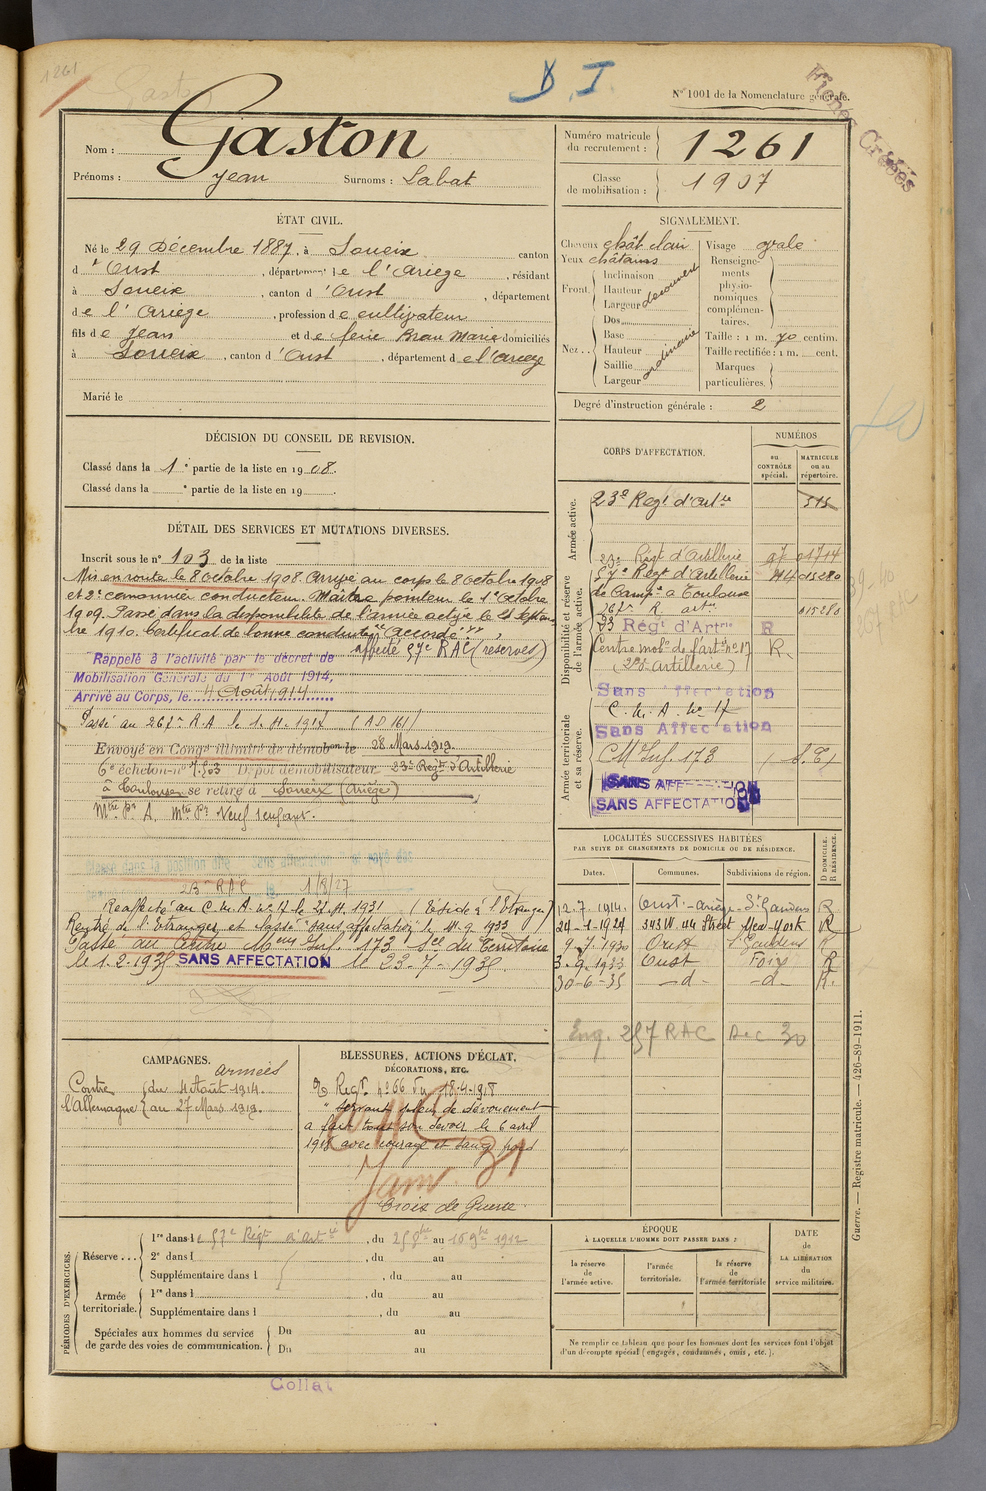 1261
D. I.
N° 1001 de la Nomenclature générale.
Fiches Créées
Nom : Gaston
Prénoms : Jean Surnoms : Sabat
Numéro matricule du recrutement : 1261
Classe de mobilisation : 1907
ÉTAT CIVIL.
Né le 29 Décembre 1887, à Soueix canton
d'Oust, département de l'Ariège, résidant
à Soueix, canton d'Oust, département
de l'Ariège, profession de cultivateur
fils de Jean et de feue Brau Marie domiciliés
à Soueix, canton d'Oust, département de l'Ariège
Marié le
SIGNALEMENT.
Cheveux chât clair
Yeux châtains
Front. Inclinaison
Hauteur
Largeur découvert
Nez. Dos
Base
Hauteur
Saillie
Largeur ordinaire
Visage ovale
Renseignements physionomiques complémentaires.
Taille : 1 m. 70 centim.
Taille rectifiée : 1 m. cent.
Marques particulières.
Degré d'instruction générale : 2
DÉCISION DU CONSEIL DE REVISION.
Classé dans la 1e partie de la liste en 1908.
Classé dans la e partie de la liste en 19
DÉTAIL DES SERVICES ET MUTATIONS DIVERSES.
Inscrit sous le n° 103 de la liste
Mis en route le 8 octobre 1908. Arrivé au corps le 8 octobre 1908
et 2e canonnier conducteur. Maître pointeur le 1er octobre
1909. Passé dans la disponibilité de l'armée active le 25 septem
bre 1910. Certificat de bonne conduite "accordé".
affecté 57e RAC (réserves)
Rappelé à l'activité par le décret de
Mobilisation Générale du 1er Août 1914,
Arrivé au Corps, le 4 Août 1914
Passé au 267e R.A le 1.11.1917 (AD 161)
Envoyé en Congé illimité de démobon le 28 Mars 1919.
6e échelon n° 7.503 Dépôt démobilisateur 23e Regt d'Artillerie
à Toulouse se retire à Soueix (Ariège)
23e RAC 1/8/27
Réaffecté au C.M.A. n° 17 le 22.11.1931 (Réside à l'Etranger)
Rentré de l'Etranger et classé sans affectation le 11.9.1933
Passé au Centre Mon Inf. 173 Son du Territoire
le 1.2.1935 SANS AFFECTATION le 23-7-1935
CORPS D'AFFECTATION.
NUMÉROS
au CONTRÔLE spécial.
MATRICULE ou au répertoire.
Armée active.
23e Regt d'artie 515
Disponibilité et réserve de l'armée active.
23e Regt d'Artillerie
57e Regt d'Artillerie
de Campne à Toulouse
267e R. artie 015280
23 Régt d'Artrie R
Centre mobon de l'artie n° 17 R.
(23e Artillerie)
Armée territoriale et sa réserve.
Sans Affectation
C.M.A. n° 17
Sans Affectation
CM Inf. 173
SANS AFFECTATION
SANS AFFECTATION
LOCALITÉS SUCCESSIVES HABITÉES
PAR SUITE DE CHANGEMENTS DE DOMICILE OU DE RÉSIDENCE.
Dates. Communes. Subdivisions de région. D DOMICILE. R RÉSIDENCE.
12.7.1914. Oust - Ariège - St Gaudens R
24-1-1924 343 W 44 Street New-York R
9-7-1930 Oust St Gaudens R
3-9-1933 Oust Foix R
30-6-35 -d- -d- R.
Enq. 257 RAC Dec 30
CAMPAGNES.
armées
Contre l'Allemagne du 4 Août 1914.
au 27 Mars 1919.
BLESSURES, ACTIONS D'ÉCLAT,
DÉCORATIONS, ETC.
O. Regt n° 66 du 18-4-1918
"servant plein de dévouement
a fait tout son devoir le 6 avril
1918 avec courage et sang froid
Croix de Guerre.
Janv. 31
PÉRIODES D'EXERCICES.
Réserve ... 1re dans le 57e Régt d'Artie, du 25 8bre au 10 9bre 1912
2e dans l , du au
Supplémentaire dans l , du au
Armée territoriale. 1re dans l , du au
Supplémentaire dans l , du au
Spéciales aux hommes du service de garde des voies de communication. Du au
Du au
ÉPOQUE
À LAQUELLE L'HOMME DOIT PASSER DANS :
la réserve de l'armée active.
l'armée territoriale.
la réserve de l'armée territoriale
DATE de LA LIBÉRATION du service militaire.
Ne remplir ce tableau que pour les hommes dont les services font l'objet
d'un décompte spécial (engagés, condamnés, omis, etc.).
Guerre. — Registre matricule. — 426-89-1911.
Collat